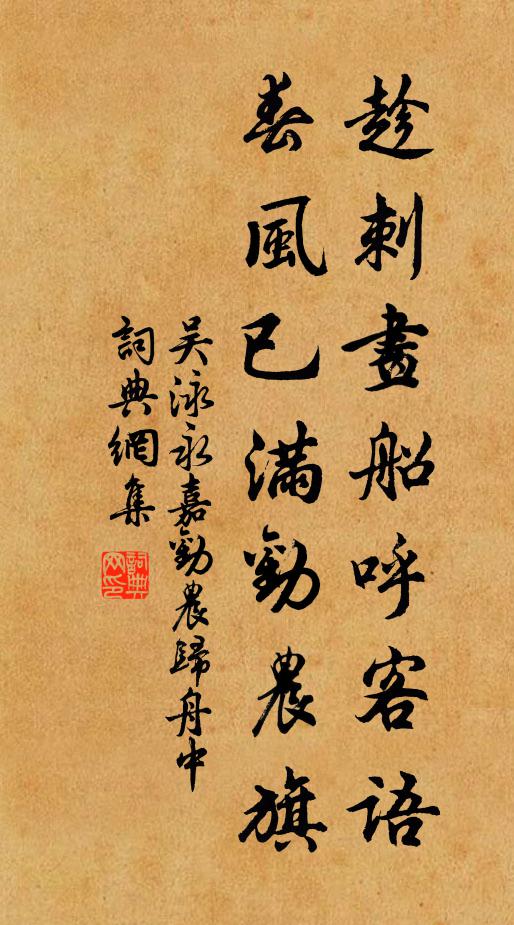 趁刺畫船呼客語
春風已滿勸農旗
吴泳永嘉勸農歸舟中
詞典網集
詞典網印